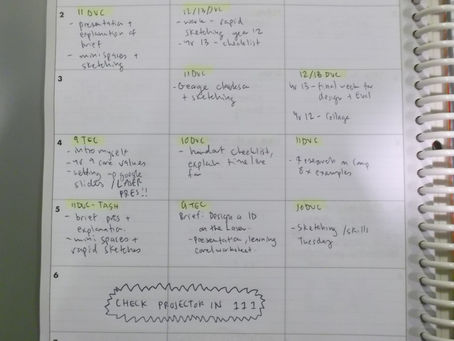 2
11 DVC
- presentation +
explanation of
brief
- mini spaces +
sketching
12/13 DVC
- work - rapid
sketching year 12
- yr 13 - checklist
3
11DVC
- George
+ sketching
12/13 DVC
yr 13 - final week for
design + Eval
yr 12 - Collage
4
9 TEC
- intro myself
- yr 9 core values
- setting up google
slides / LASER
PRES!!
10DVC
- handout checklist,
explain timeline
far
11DVC
- research on
8x examples
5
11DVC - TASH
- brief pres +
explanation.
- mini spaces +
rapid sketches
9 TEC
Brief: Design a ID
on the Laser
- Presentation, learning
worksheet.
10 DVC
- Sketching / skills
Tuesday
6
CHECK PROJECTOR IN 111